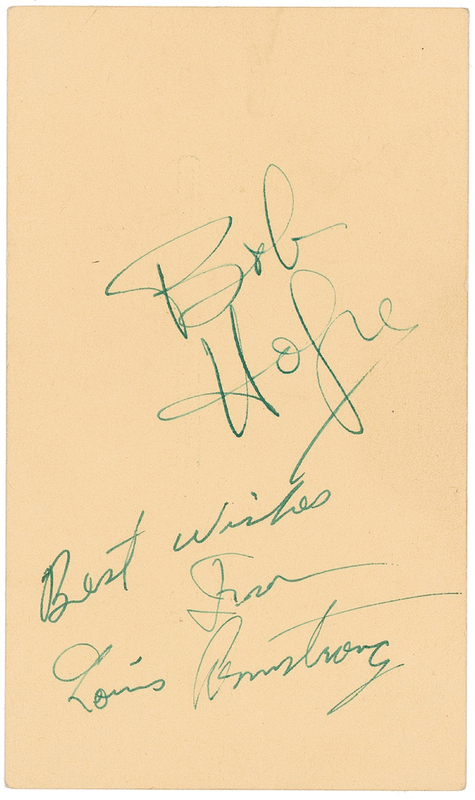 Bob
Hope
Best Wishes
From
Louis Armstrong